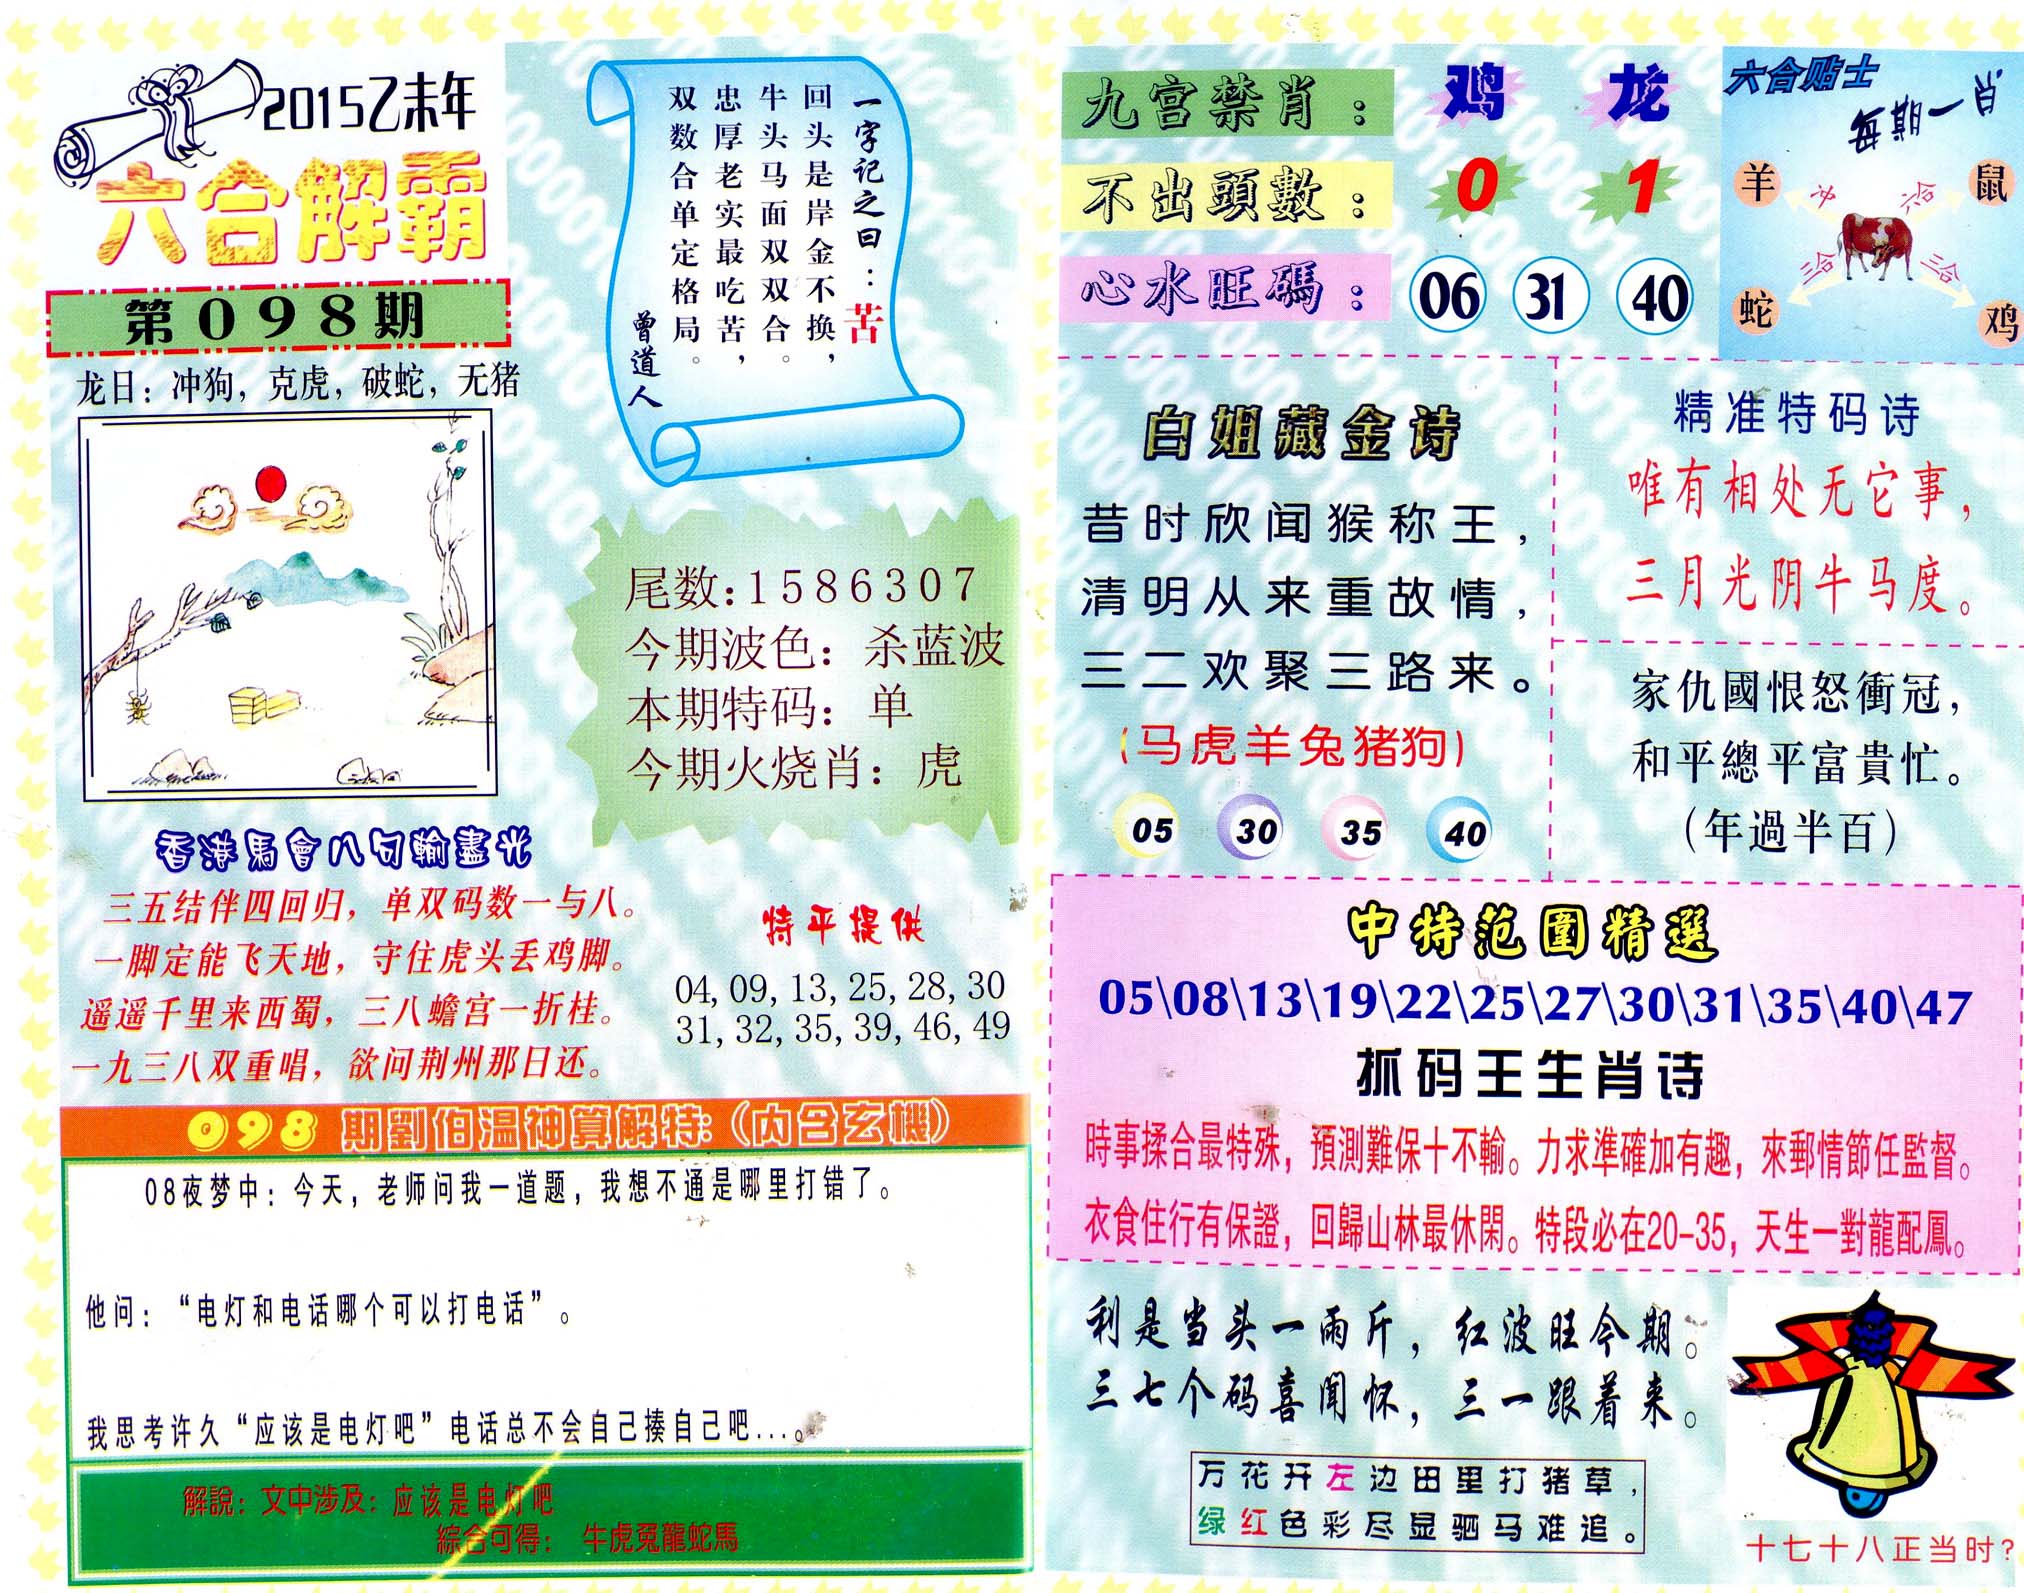 2015乙未年
六合解霸
第098期
龙日：冲狗，克虎，破蛇，无猪
一字记之曰：苦
回头是岸金不换，
牛头马面双双合。
忠厚老实最吃苦，
双数合单定格局。
曾道人
尾数:1586307
今期波色：杀蓝波
本期特码：单
今期火烧肖：虎
香港馬會八句輸盡光
三五结伴四回归，单双码数一与八。
一脚定能飞天地，守住虎头丢鸡脚。
遥遥千里来西蜀，三八蟾宫一折桂。
一九三八双重唱，欲问荆州那日还。
特平提供
04,09,13,25,28,30
31,32,35,39,46,49
098期劉伯温神算解特:(内含玄機)
08夜梦中：今天，老师问我一道题，我想不通是哪里打错了。
他问：“电灯和电话哪个可以打电话”。
我思考许久“应该是电灯吧”电话总不会自己揍自己吧...。
解說：文中涉及：应该是电灯吧
綜合可得： 牛虎兔龍蛇馬
九宫禁肖：鸡 龙
不出頭數：0 1
心水旺碼：06 31 40
六合贴士
每期一肖
羊 冲 六合 鼠
蛇 三合 三合 鸡
白姐藏金诗
昔时欣闻猴称王，
清明从来重故情，
三二欢聚三路来。
(马虎羊兔猪狗)
05 30 35 40
精准特码诗
唯有相处无它事，
三月光阴牛马度。
家仇國恨怒衝冠，
和平總平富貴忙。
(年過半百)
中特范圍精選
05\08\13\19\22\25\27\30\31\35\40\47
抓码王生肖诗
時事揉合最特殊，預測難保十不輸。力求準確加有趣，來郵情節任監督。
衣食住行有保證，回歸山林最休閑。特段必在20-35，天生一對龍配鳳。
利是当头一雨斤，红波旺今期。
三七个码喜闻怀，三一跟着来。
万花开左边田里打猪草，
绿红色彩尽显驷马难追。
十七十八正当时?